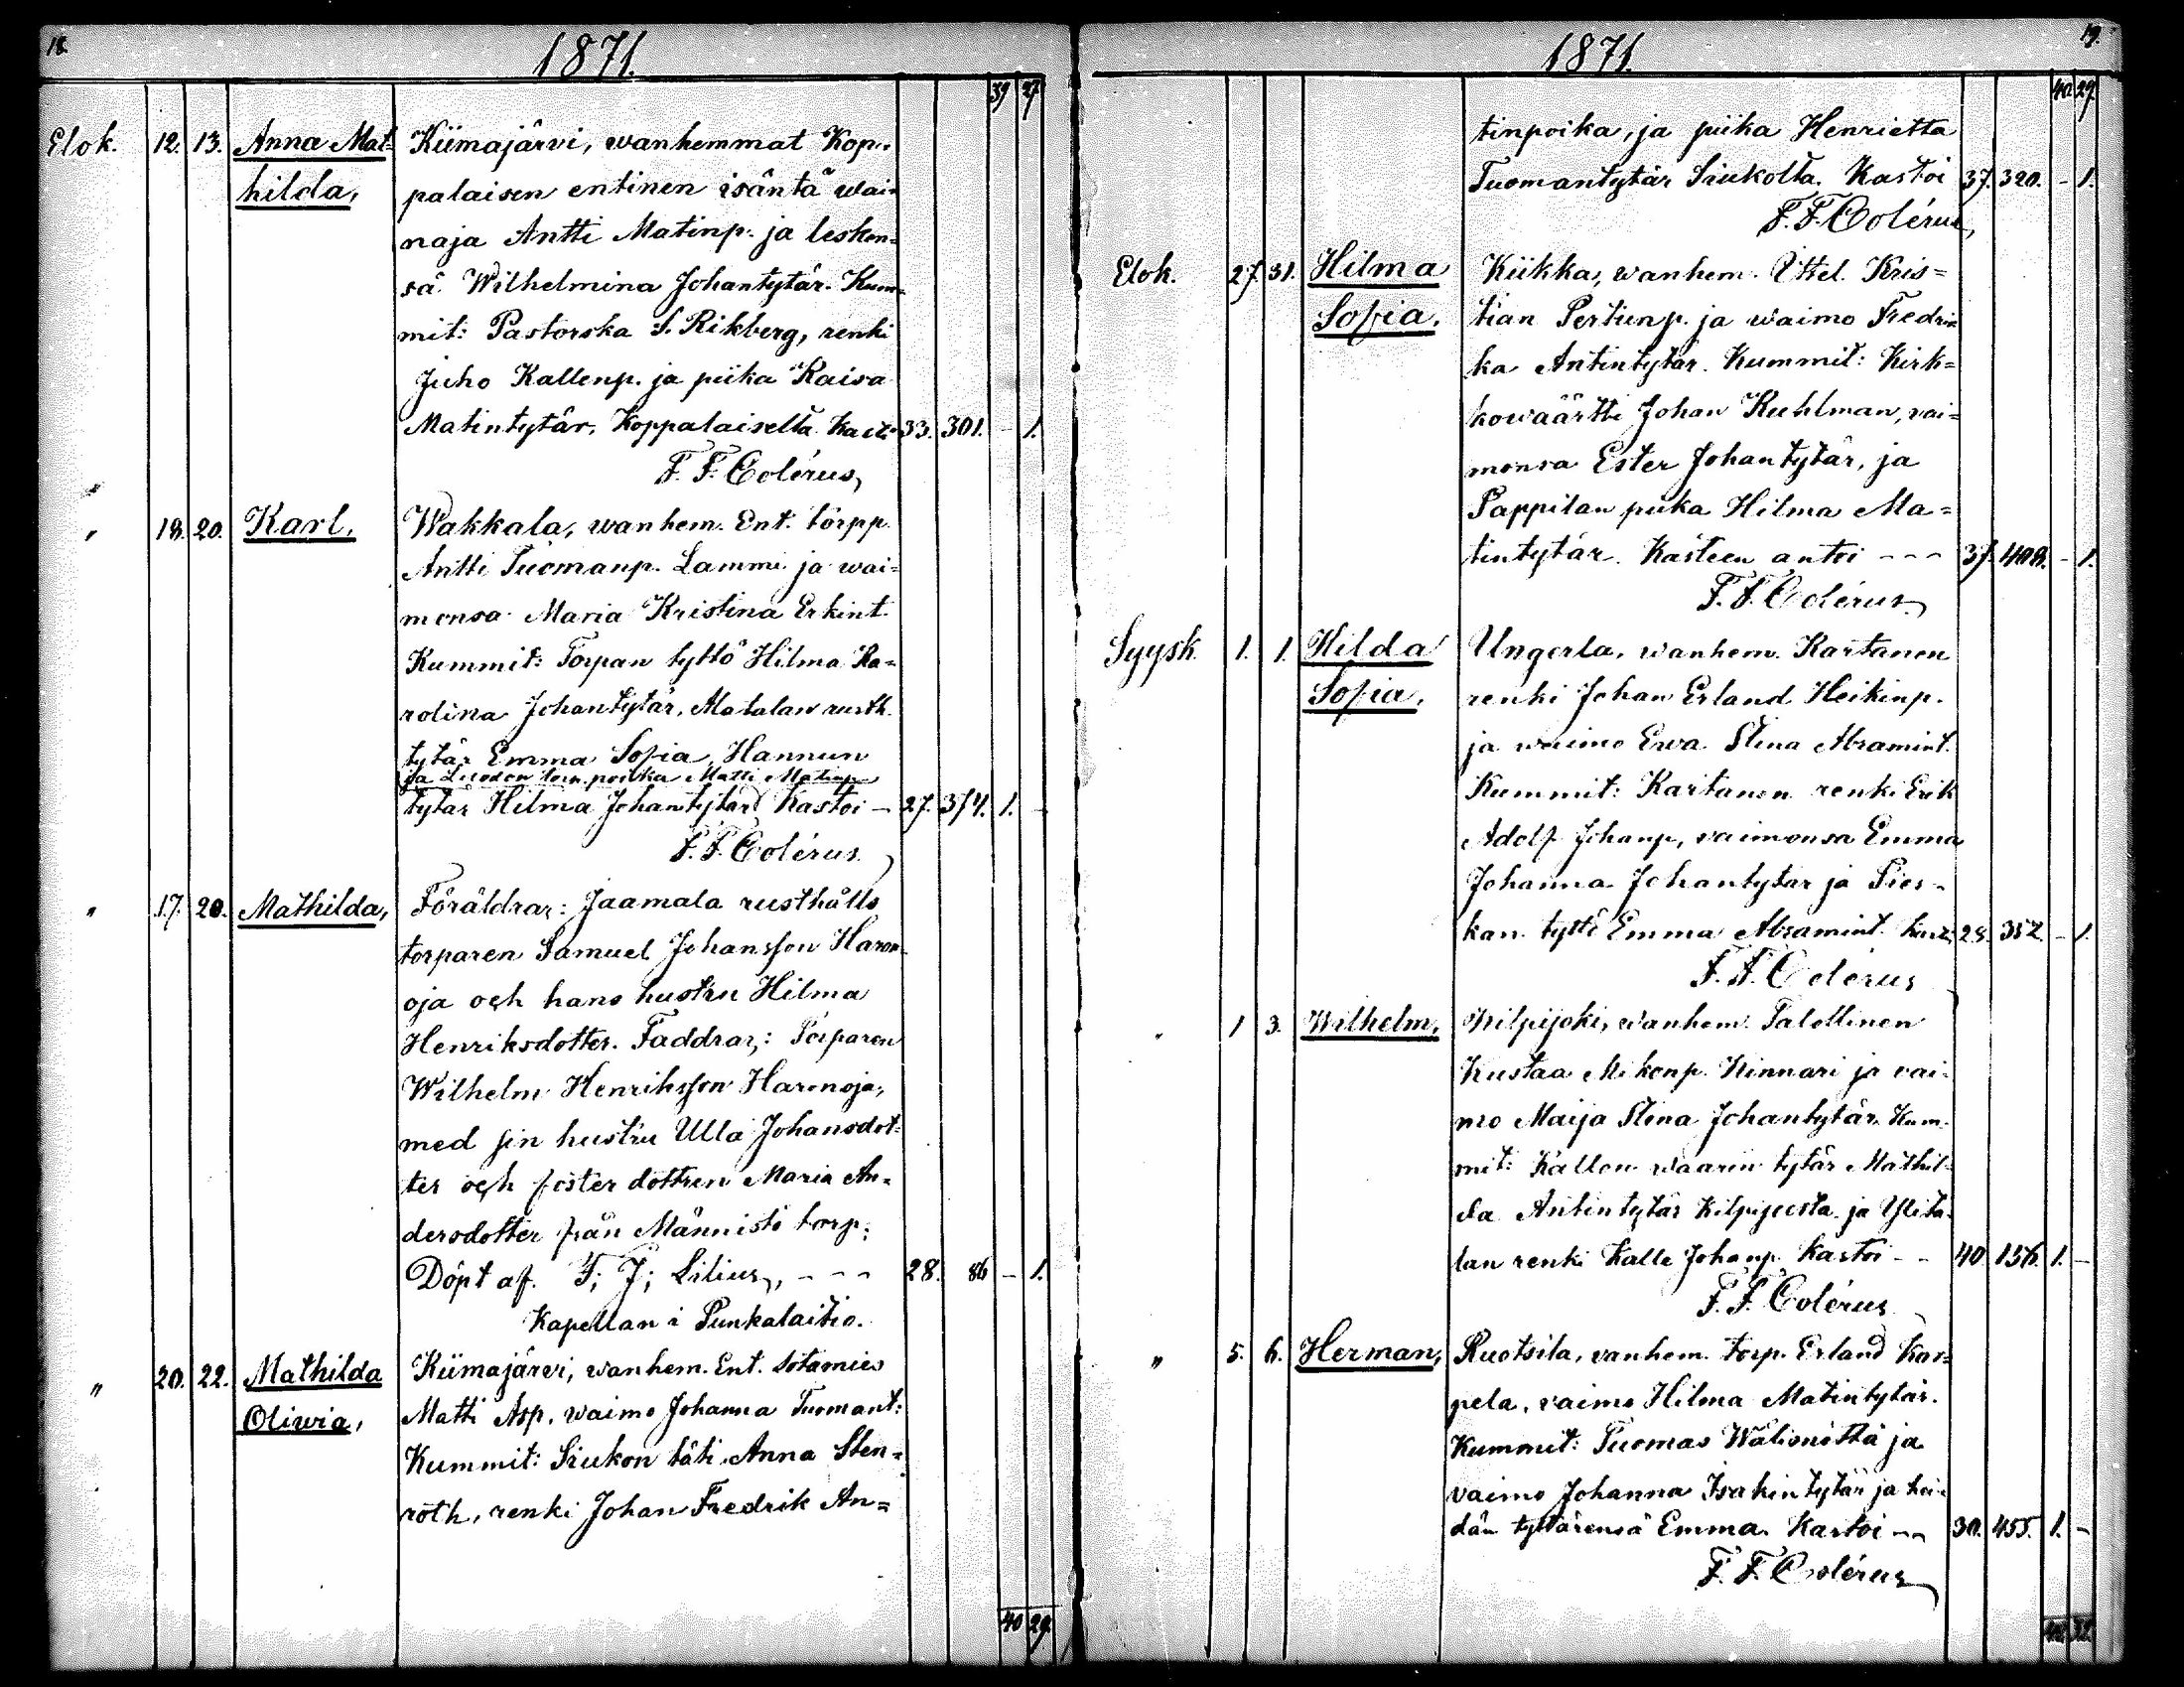 18.
1871.
39 27
Elok. 12. 13. Anna Mat- Kiimajärvi, wanhemmat Kop-
hilda, palaisen entinen isäntä wai-
naja Antti Matinp. ja lesken-
sä Wilhelmina Johantytär. Kum-
mit: Pastorska S. Rikberg, renki
Juho Kallenp. ja piika Kaisa
Matintytär, Koppalaiselta. 33. 301. - 1.
F. F. Colérus,
" 18. 20. Karl, Wakkala, wanhem. Ent. torpp.
Antti Tuomanp. Lammi ja wai-
monsa Maria Kristina Erkint.
Kummit: Torpan tyttö Hilma Ka-
rolina Johantytär, Matalan rusth.
tytär Emma Sofia, Hannun
ja torp. poika Matti Matinp.
tytär Hilma Johantytär Kastoi - 27. 374. 1. -
F. F. Colérus.
" 17. 20. Mathilda, Föräldrar: Jaamala rusthålls
torparen Samuel Johansson Haron-
oja och hans hustru Hilma
Henriksdotter. Faddrar,: Torparen
Wilhelm Henriksson Haronoja,
med sin hustru Ulla Johansdot-
ter och foster dottren Maria An-
dersdotter från Männistö torp;
Döpt af. F; J; Lilius, - - - 28. 86 - 1.
Kapellan i Punkalaitio.
" 20. 22. Mathilda Kiimajärvi, wanhem. Ent. sotamies
Oliwia, Matti Asp, waimo Johanna Tuomant:
Kummit: Siukon täti Anna Sten-
roth, renki Johan Fredrik An-
40 29
19.
1871.
40 29.
tinpoika, ja piika Henrietta
Tuomantytär Siukolta. Kastoi 37. 320. - 1.
F. F. Colérus,
Elok. 27. 31. Hilma Kiikka, wanhem. Ittel. Kris-
Sofia, tian Pertunp. ja waimo Fredri
ka Antintytär. Kummit: Kirk-
kowäärtti Johan Kuhlman, vai-
monsa Ester Johantytär, ja
Pappilan piika Hilma Ma-
tintytär. Kasteen antoi - - - 37. 408. - 1.
F. F. Colérus.
Syysk. 1. 1. Hilda Ungerla, wanhem. Kartanon
Sofia, renki Johan Erland Heikinp.
ja waimo Ewa Stina Abramint.
Kummit: Kartanon renki Erik
Adolf Johanp, vaimonsa Emma
Johanna Johantytär ja Pies-
kan tyttö Emma Abramint. 28. 352. - 1.
F. F. Colérus
" 1 3. Wilhelm, Kilpijoki, wanhem. Talollinen
Kustaa Mikonp. Kinnari ja vai-
mo Maija Stina Johantytär. Kum-
mit: Kallon waarin tytär Mathil-
da Antintytär Kilpijoesta ja Ylita-
lan renki Kalle Johanp. Kastoi - - 40 156. 1. -
F. F. Colérus
" 5. 6. Herman, Ruotsila, vanhem. torp. Erland Kar-
pela, vaimo Hilma Matintytär.
Kummit: Tuomas Wälionilta ja
vaimo Johanna Isakintytär ja hei-
dän tyttärensä Emma. Kastoi - - 30. 455. 1. -
F. F. Colérus
42 32